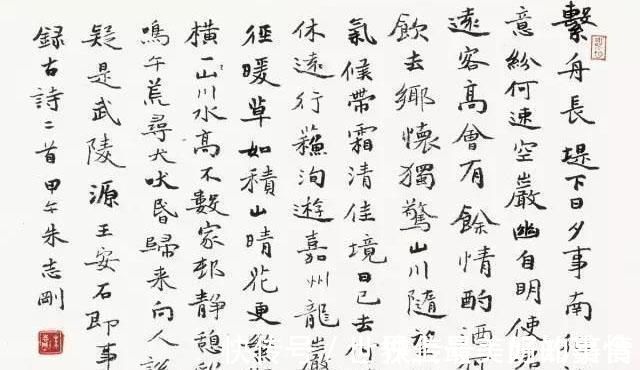 繫舟長堤下日夕事南
意紛何速空巖幽自明使
遠客高會有餘情酌酒
飲去鄉懷獨驚山川隨
氣候帶霜清佳境日已去
休遠行蘇洵遊嘉州龍巖
徑暖草如積山晴花更
橫一山川水高不數家邨靜憩
鳴午荒尋犬吠昏歸来向人
疑是武陵源王安石即事
録古詩二首甲午朱志剛
快传号 /